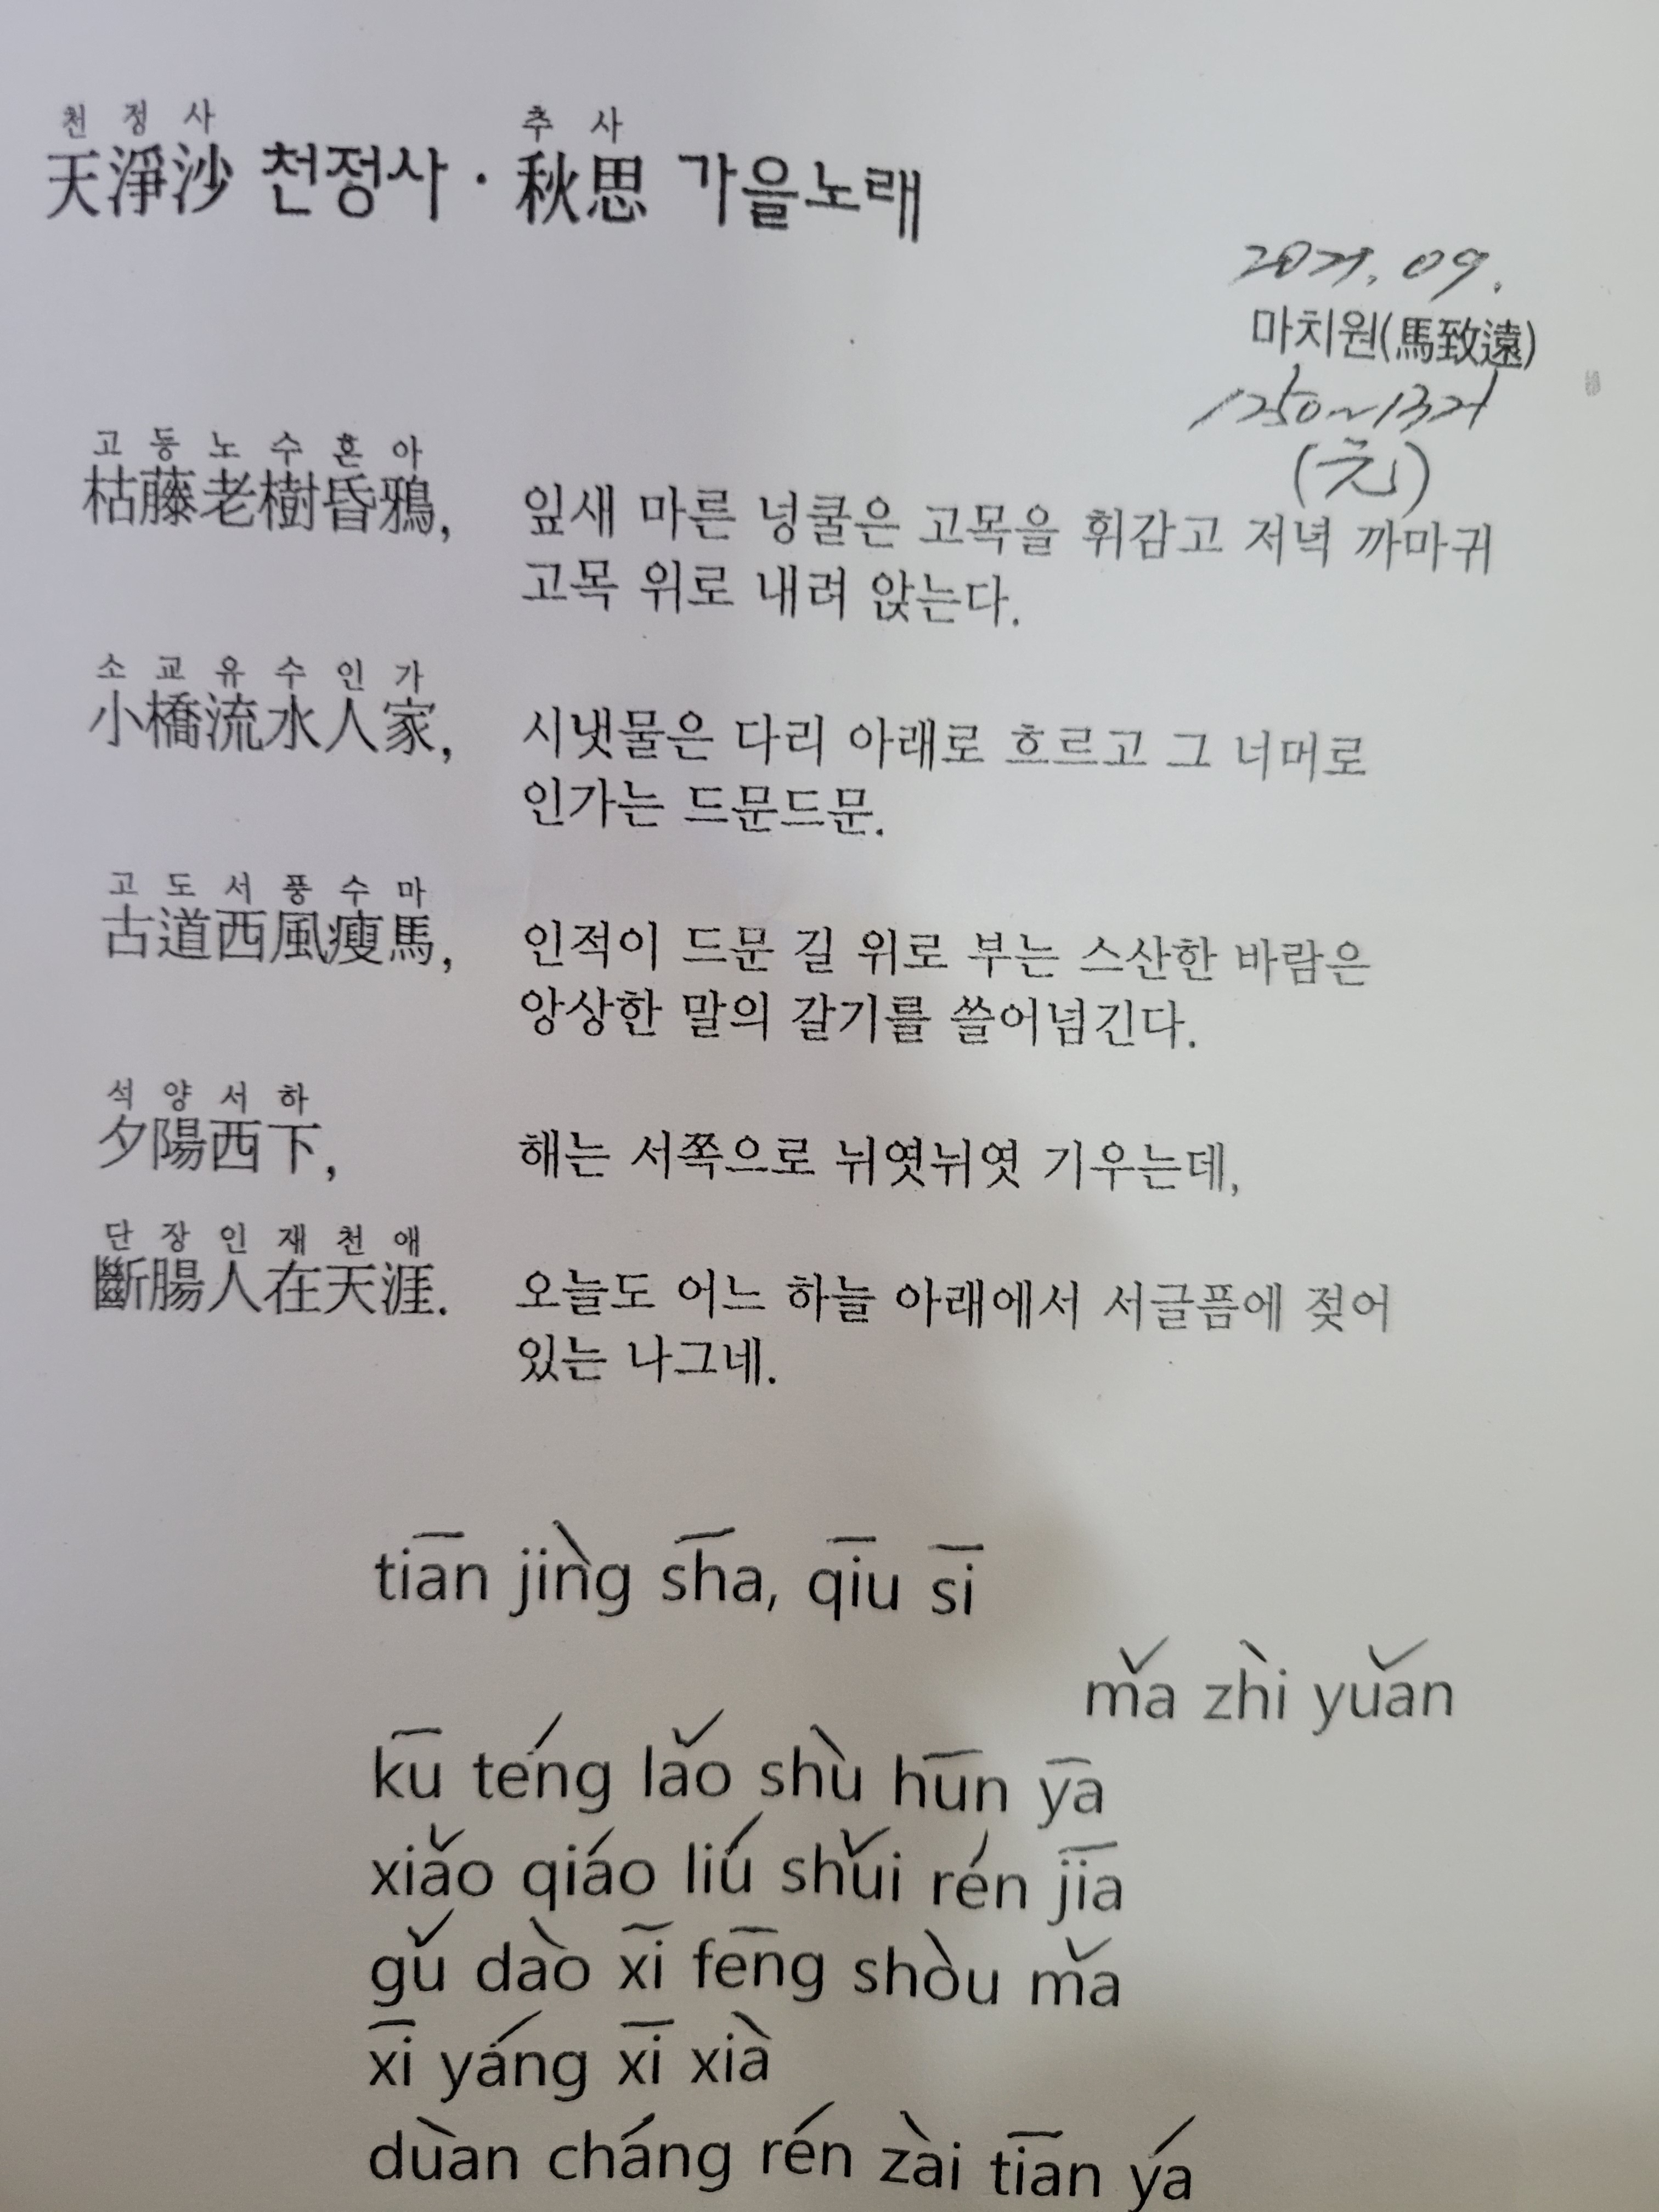 천 정 사 추 사
天淨沙 천정사 · 秋思 가을노래
2021. 09.
마치원(馬致遠)
1250~1321
(元)
고 등 노 수 혼 아
枯藤老樹昏鴉, 잎새 마른 넝쿨은 고목을 휘감고 저녁 까마귀
고목 위로 내려 앉는다.
소 교 유 수 인 가
小橋流水人家, 시냇물은 다리 아래로 흐르고 그 너머로
인가는 드문드문.
고 도 서 풍 수 마
古道西風瘦馬, 인적이 드문 길 위로 부는 스산한 바람은
앙상한 말의 갈기를 쓸어넘긴다.
석 양 서 하
夕陽西下, 해는 서쪽으로 뉘엿뉘엿 기우는데,
단 장 인 재 천 애
斷腸人在天涯. 오늘도 어느 하늘 아래에서 서글픔에 젖어
있는 나그네.
tiān jìng shā, qiū sī
mǎ zhì yuǎn
kū téng lǎo shù hūn yā
xiǎo qiáo liú shuǐ rén jiā
gǔ dào xī fēng shòu mǎ
xī yáng xī xià
duàn cháng rén zài tiān yá